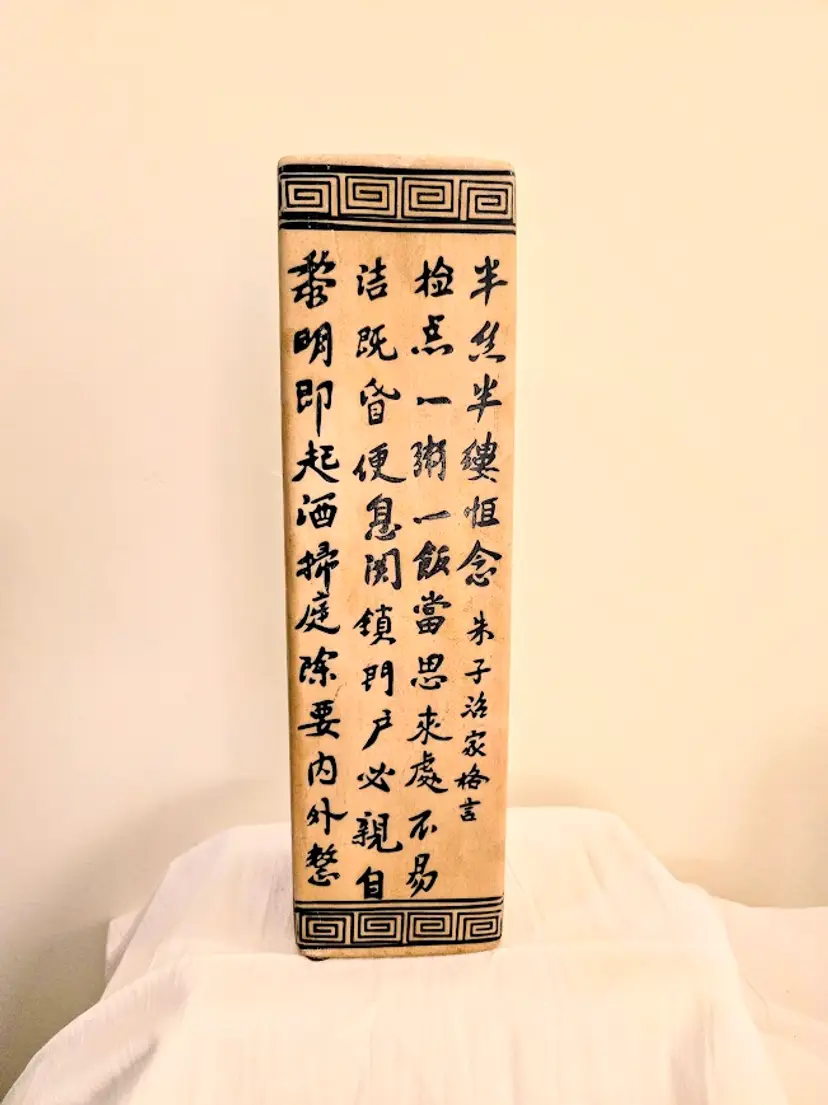 黎明即起洒掃庭除要内外整
洁既昏便息関鎖門户必親自
检点一粥一飯當思來處不易
半丝半縷恒念
朱子治家格言